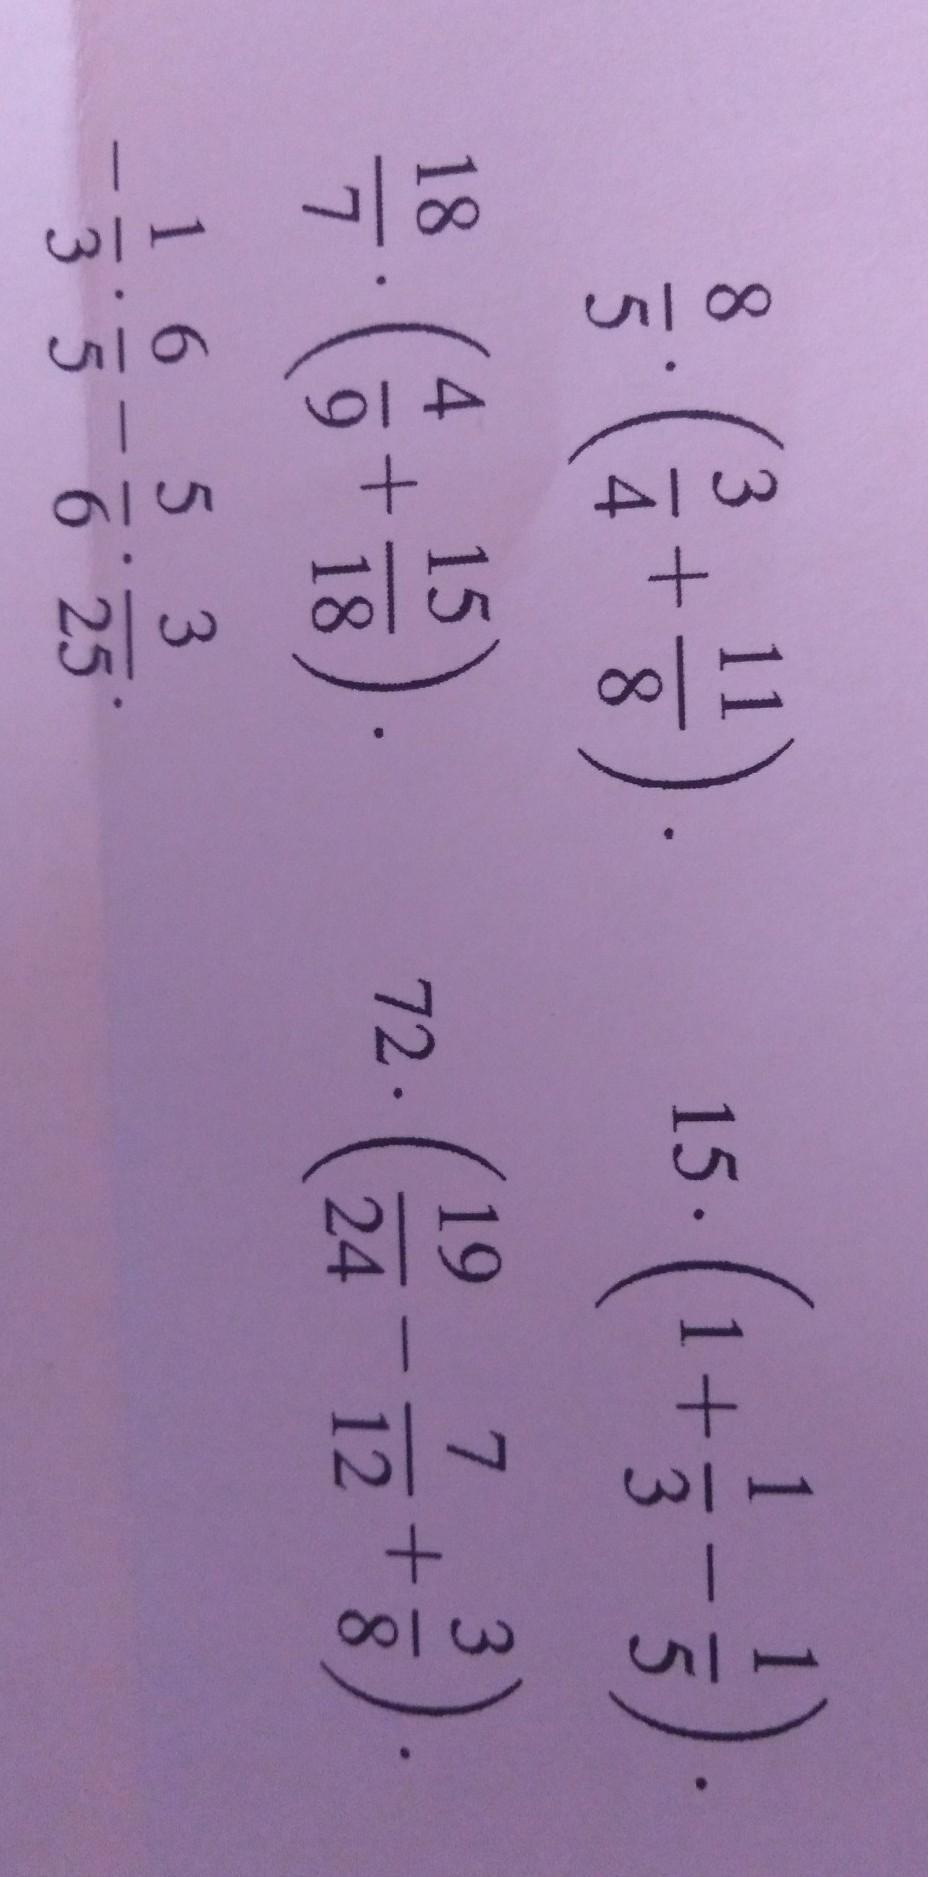 8/5 · (3/4 + 11/8).
15 · (1 + 1/3 − 1/5).
18/7 · (4/9 + 15/18).
72 · (19/24 − 7/12 + 3/8).
− 1/3 · 6/5 − 5/6 · 3/25.